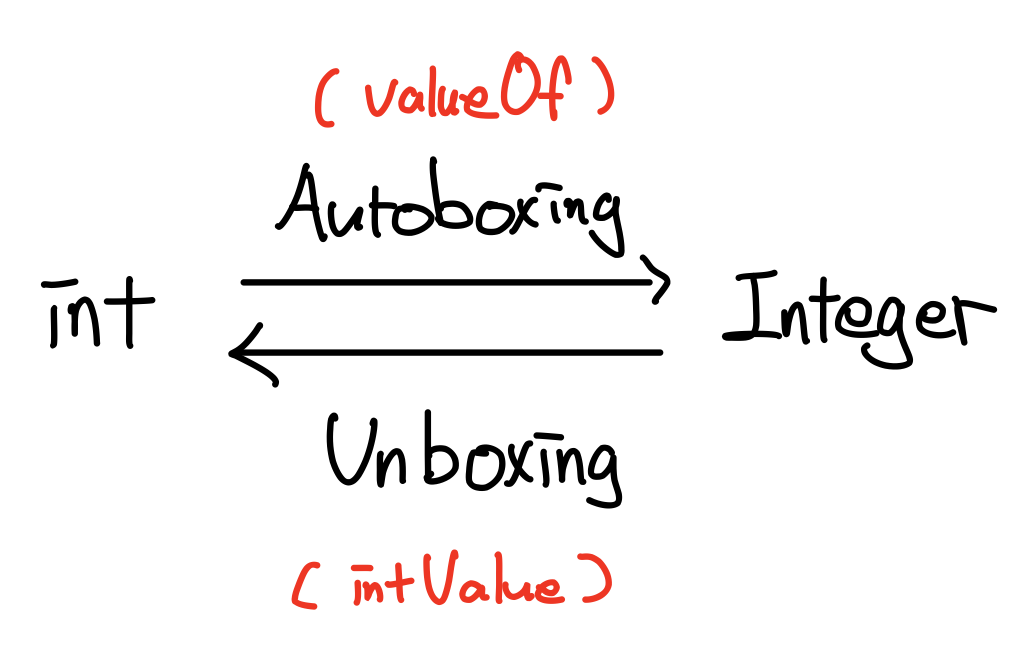 (valueOf)
Autoboxing
int
Integer
Unboxing
(intValue)